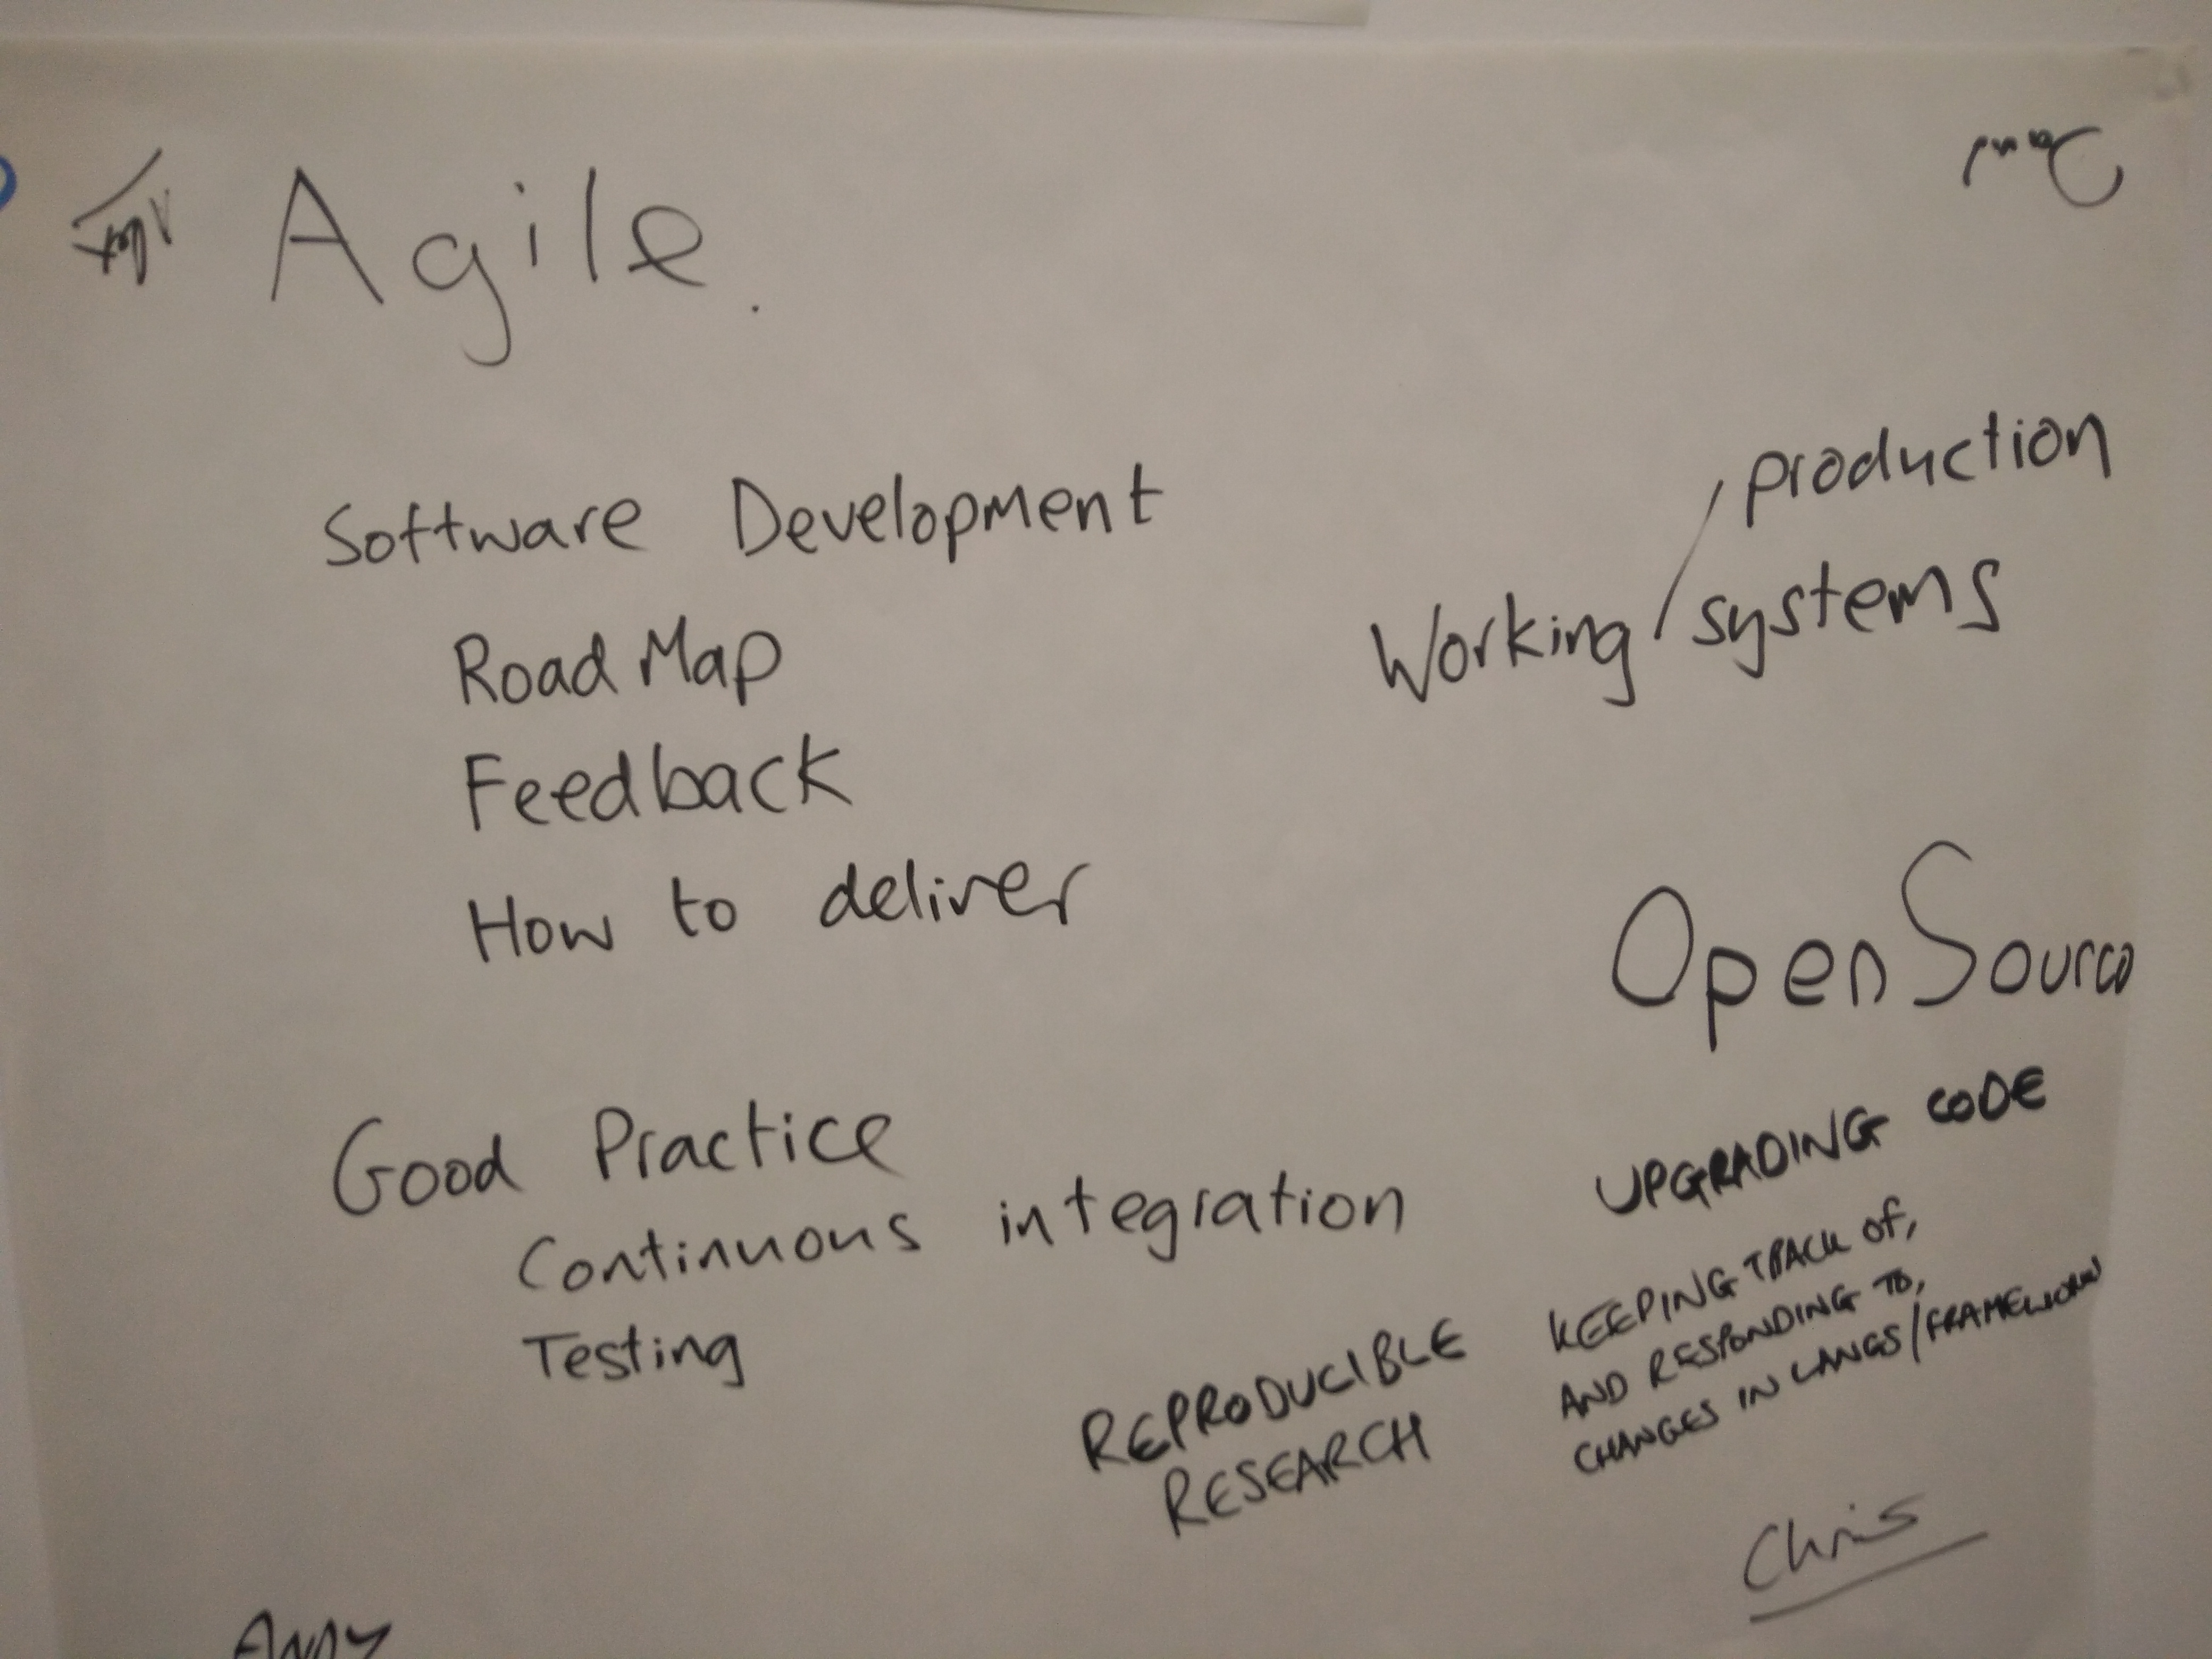 Agile.
Software Development
Road Map
Feedback
How to deliver
production
Working / systems
Open Source
Good Practice
Continuous integration
Testing
UPGRADING CODE
KEEPING TRACK OF,
AND RESPONDING TO,
CHANGES IN LANGS/FRAMEWORKS
REPRODUCIBLE
RESEARCH
Chris
ANDY